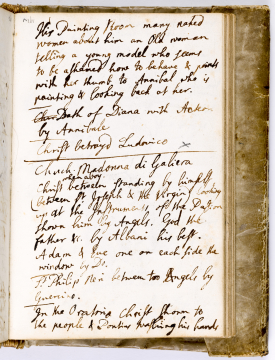 His Painting Room many naked
women about him an Old woman
telling a young model who seems
to be ashamed how to behave & points
with her thumb to Annibal who is
painting & looking back at her.
Bath of Diana with Acteon
by Annibale
Christ betrayd Ludovico
Church Madonna di Galiera
Christ between standing by himself
between St Joseph & the Virgin looking
up at the Instruments of the Passion
shown him by Angels. God the
father &c. by Albani his best.
Adam & Eve one on each side the
window by Do
St Philip Neri between two Angels by
Guercino.
In the Oratorio Christ shown to
the people & Pontius washing his hands